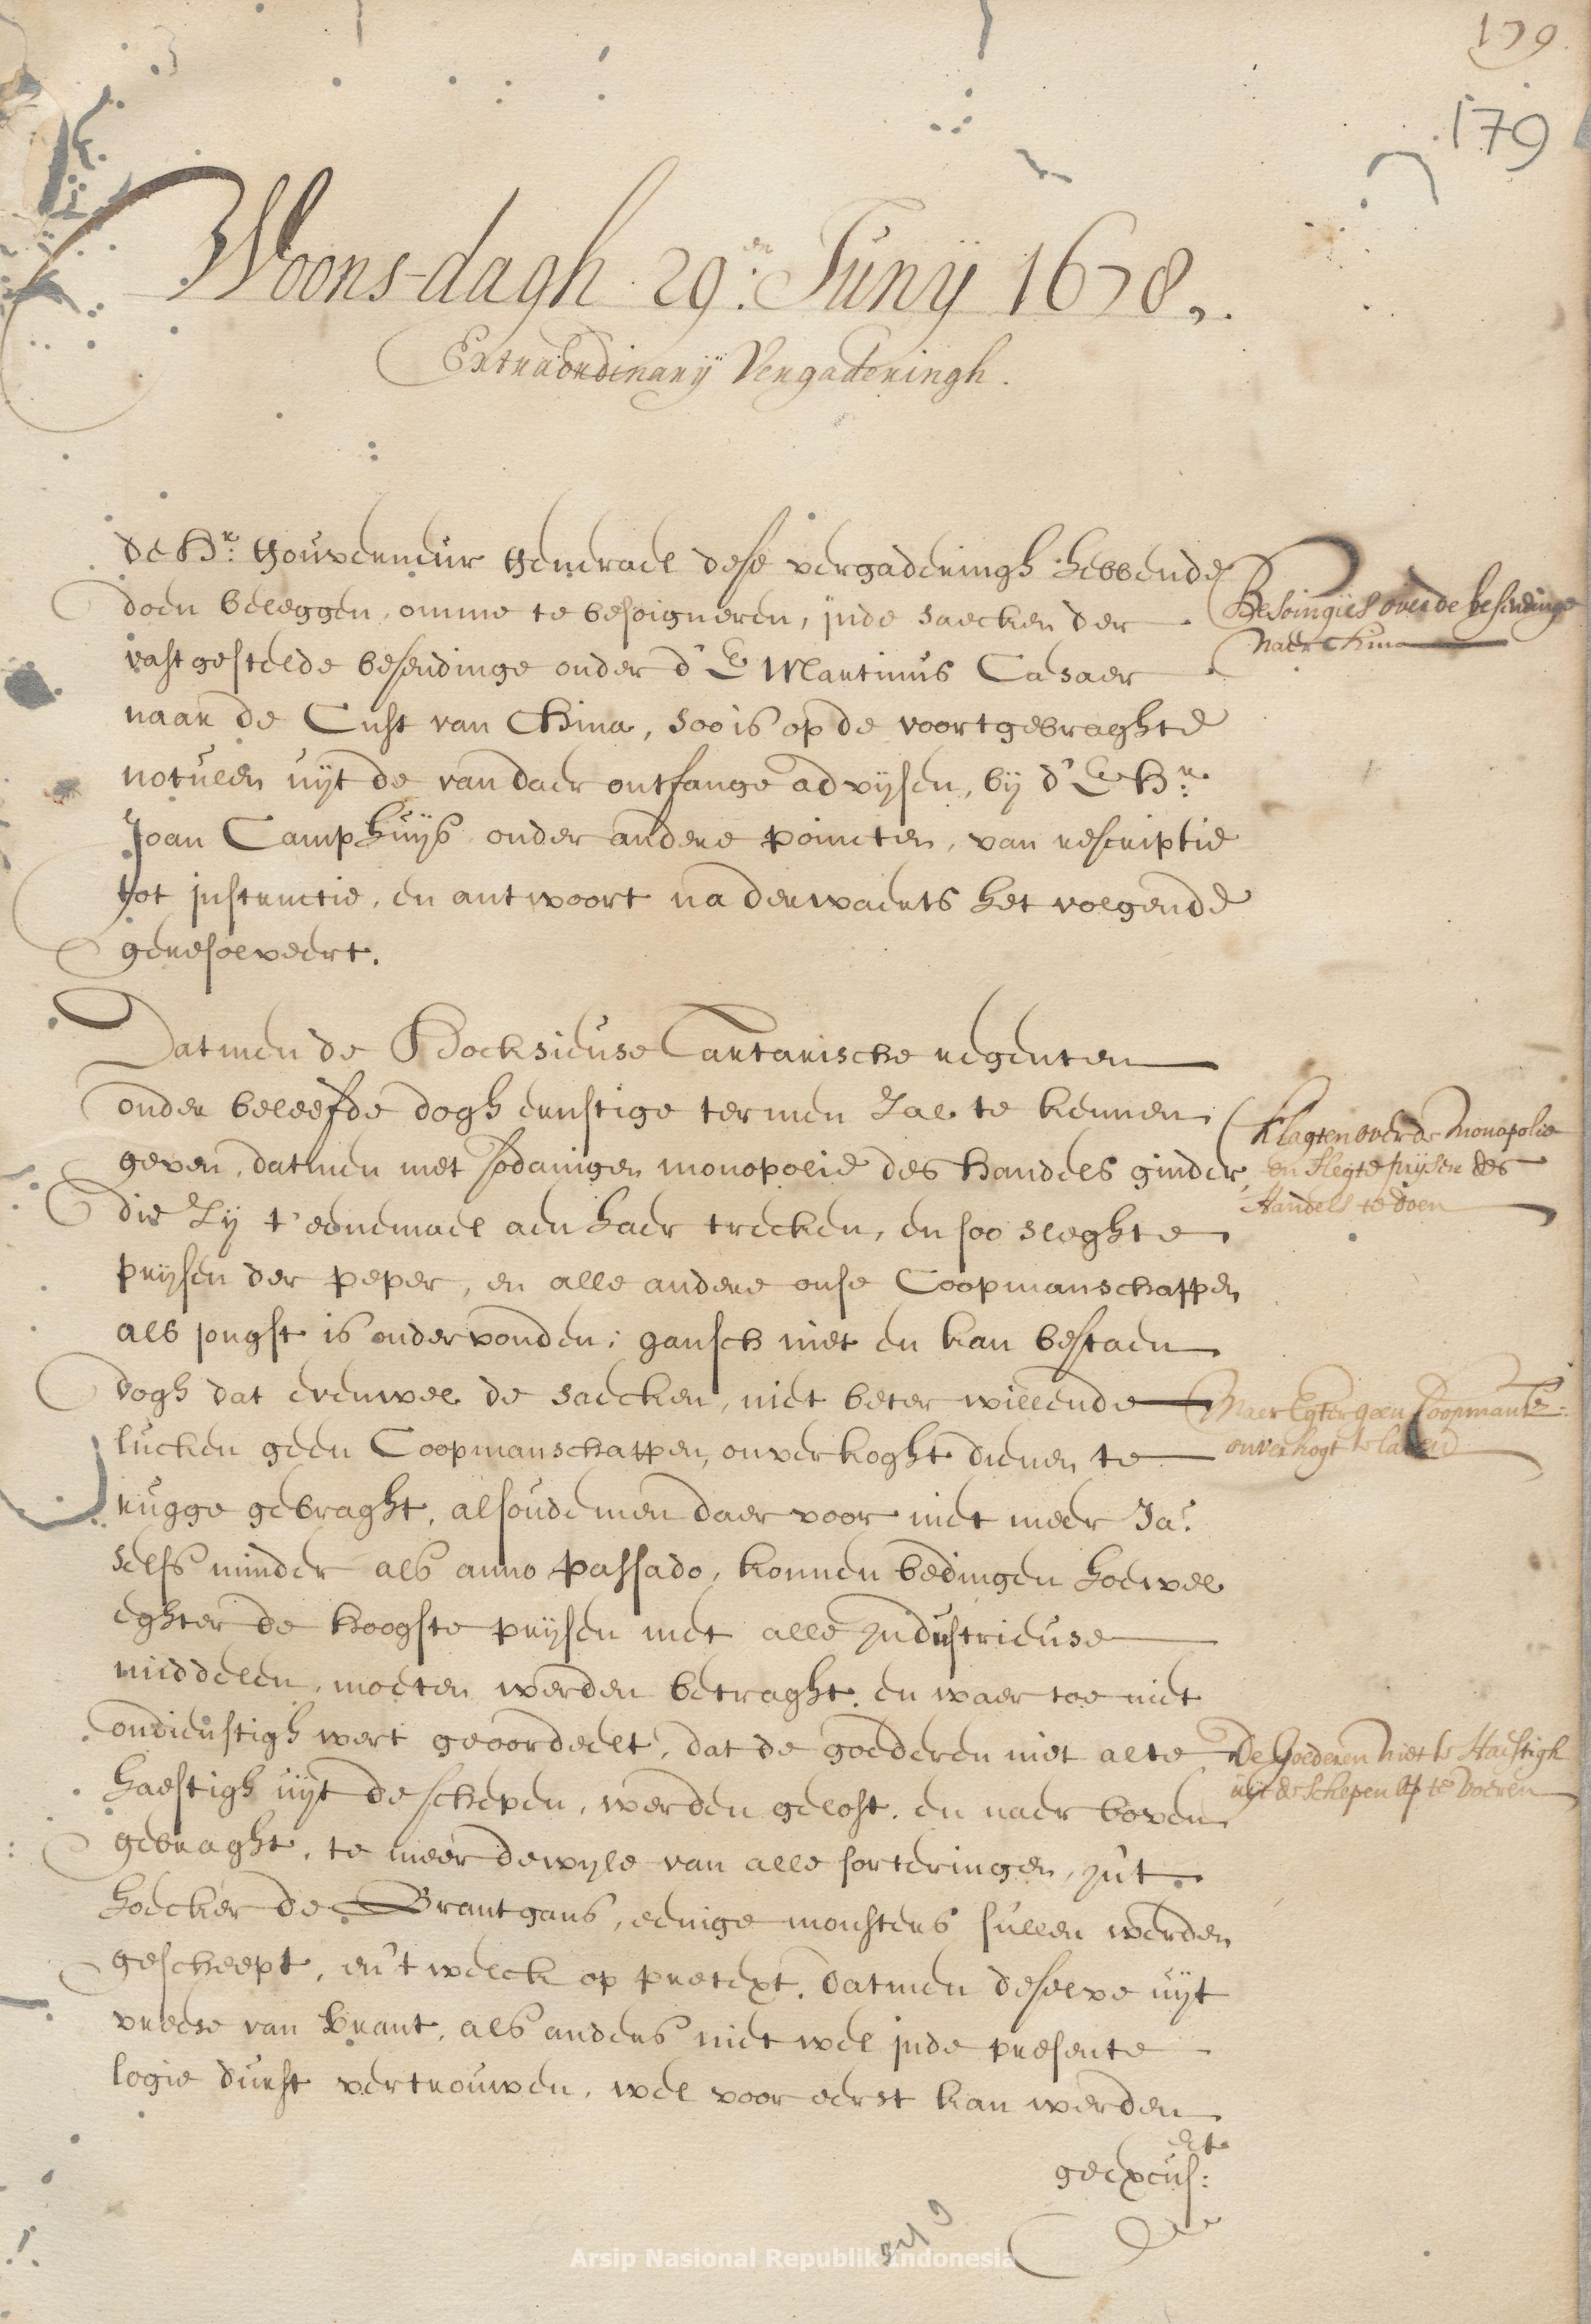 179.
179
Woons-dagh 29:en Junÿ 1678.
Extraordinarÿ Vergaderingh.
de Hr: Gouverneur Generael dese vergaderingh hebbende
doen beleggen, omme te besoigneren, inde saecken der
vastgestelde besendinge onder d' E Martinus Caesaer
naar de Cust van China, soo is op de voortgebraghte
notulen uÿt de van daer ontfange advijsen, bij d' E Hr:
Joan Camphuÿs onder andere poincten, van rescriptie
tot instructie, en antwoort na derwaerts het volgende
geresolveert.
Besoingies over de besendinge
naer China
Datmen de Hocksieuse Tartarische regenten
onder beleefde dogh ernstige termen zal te kennen
geven, datmen met sodanigen monopolie des handels ginder,
die zij t' eenemael aen haer trecken, en soo sleghte
prijsen der peper, en alle andere onse Coopmanschappen
als jongst is ondervonden; gansch niet en kan bestaen
dogh dat evenwel de saecken, niet beter willende
lucken geen Coopmanschappen, onverkoght dienen te
rugge gebraght, alsoude men daer voor niet meer Ja
selfs minder als anno passado, konnen bedingen hoewel
eghter de hoogste prijsen met alle industrieuse
middelen, moeten werden betraght. en waer toe niet
ondienstigh wert geoordeelt, dat de goederen niet al te
haestigh uÿt de schepen, werden gelost. en naer boven
gebraght, te meer dewyle van alle sorteringen, in't
hoecker de Brantgans, eenige monsters sullen werden
gescheept, en't welck op pretext. datmen deselve uÿt
vreese van brant, als anders niet wel inde presente
logie durft vertrouwen, wel voor eerst kan werden
geexcus:eert
Klagten over de monopolie
en slegte prijsen des
Handels te doen
Maer Egter geen Coopmansz:
onverkogt te laten
De Goederen niet te Haestigh
uijt de schepen op te voeren
Arsip Nasional Republik Indonesia